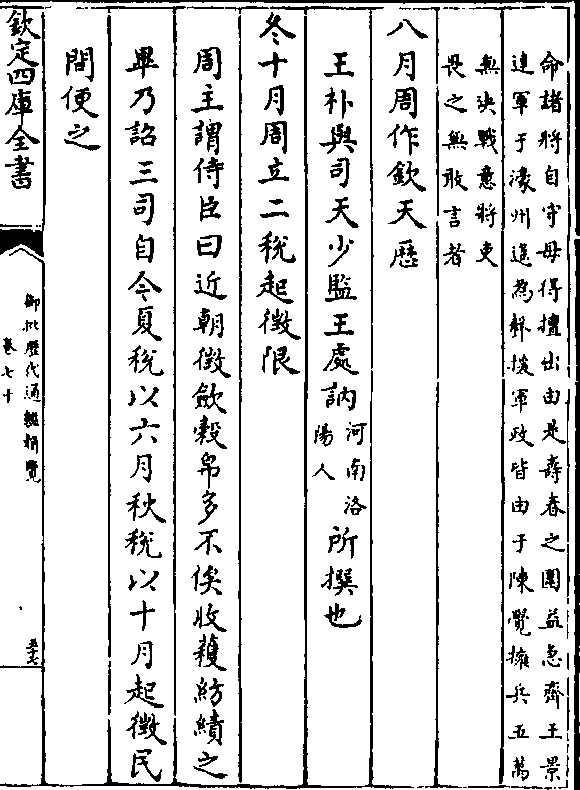 命諸將自守毋得擅出由是壽春之圍益急齊王景
達軍于濠州遙為聲援軍政皆由于陳覺擁兵五萬
無決戰意將吏
畏之無敢言者
八月周作欽天歷
王朴與司天少監王處訥
河南洛
陽人
所撰也
冬十月周立二稅起徵限
周主謂侍臣曰近朝徵斂穀帛多不俟收穫紡績之
畢乃詔三司自今夏稅以六月秋稅以十月起徵民
間便之
欽定四庫全書
御批歷代通鑑輯覽
卷七十